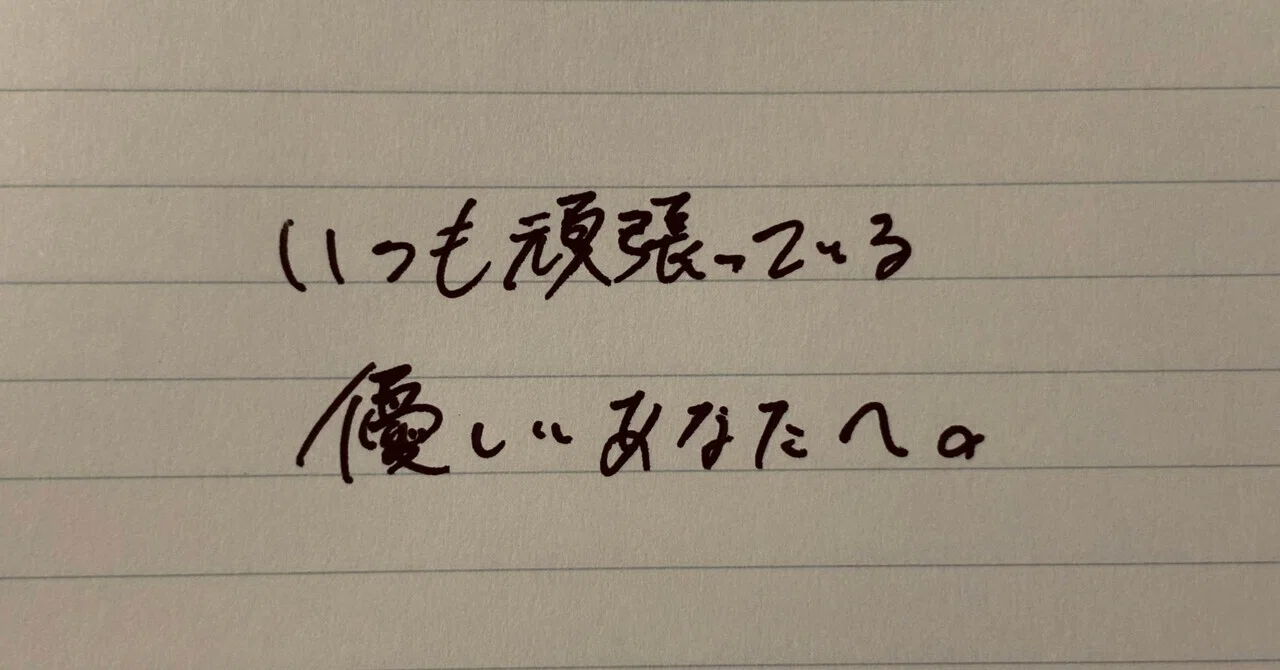 いつも頑張っている
優しいあなたへ。